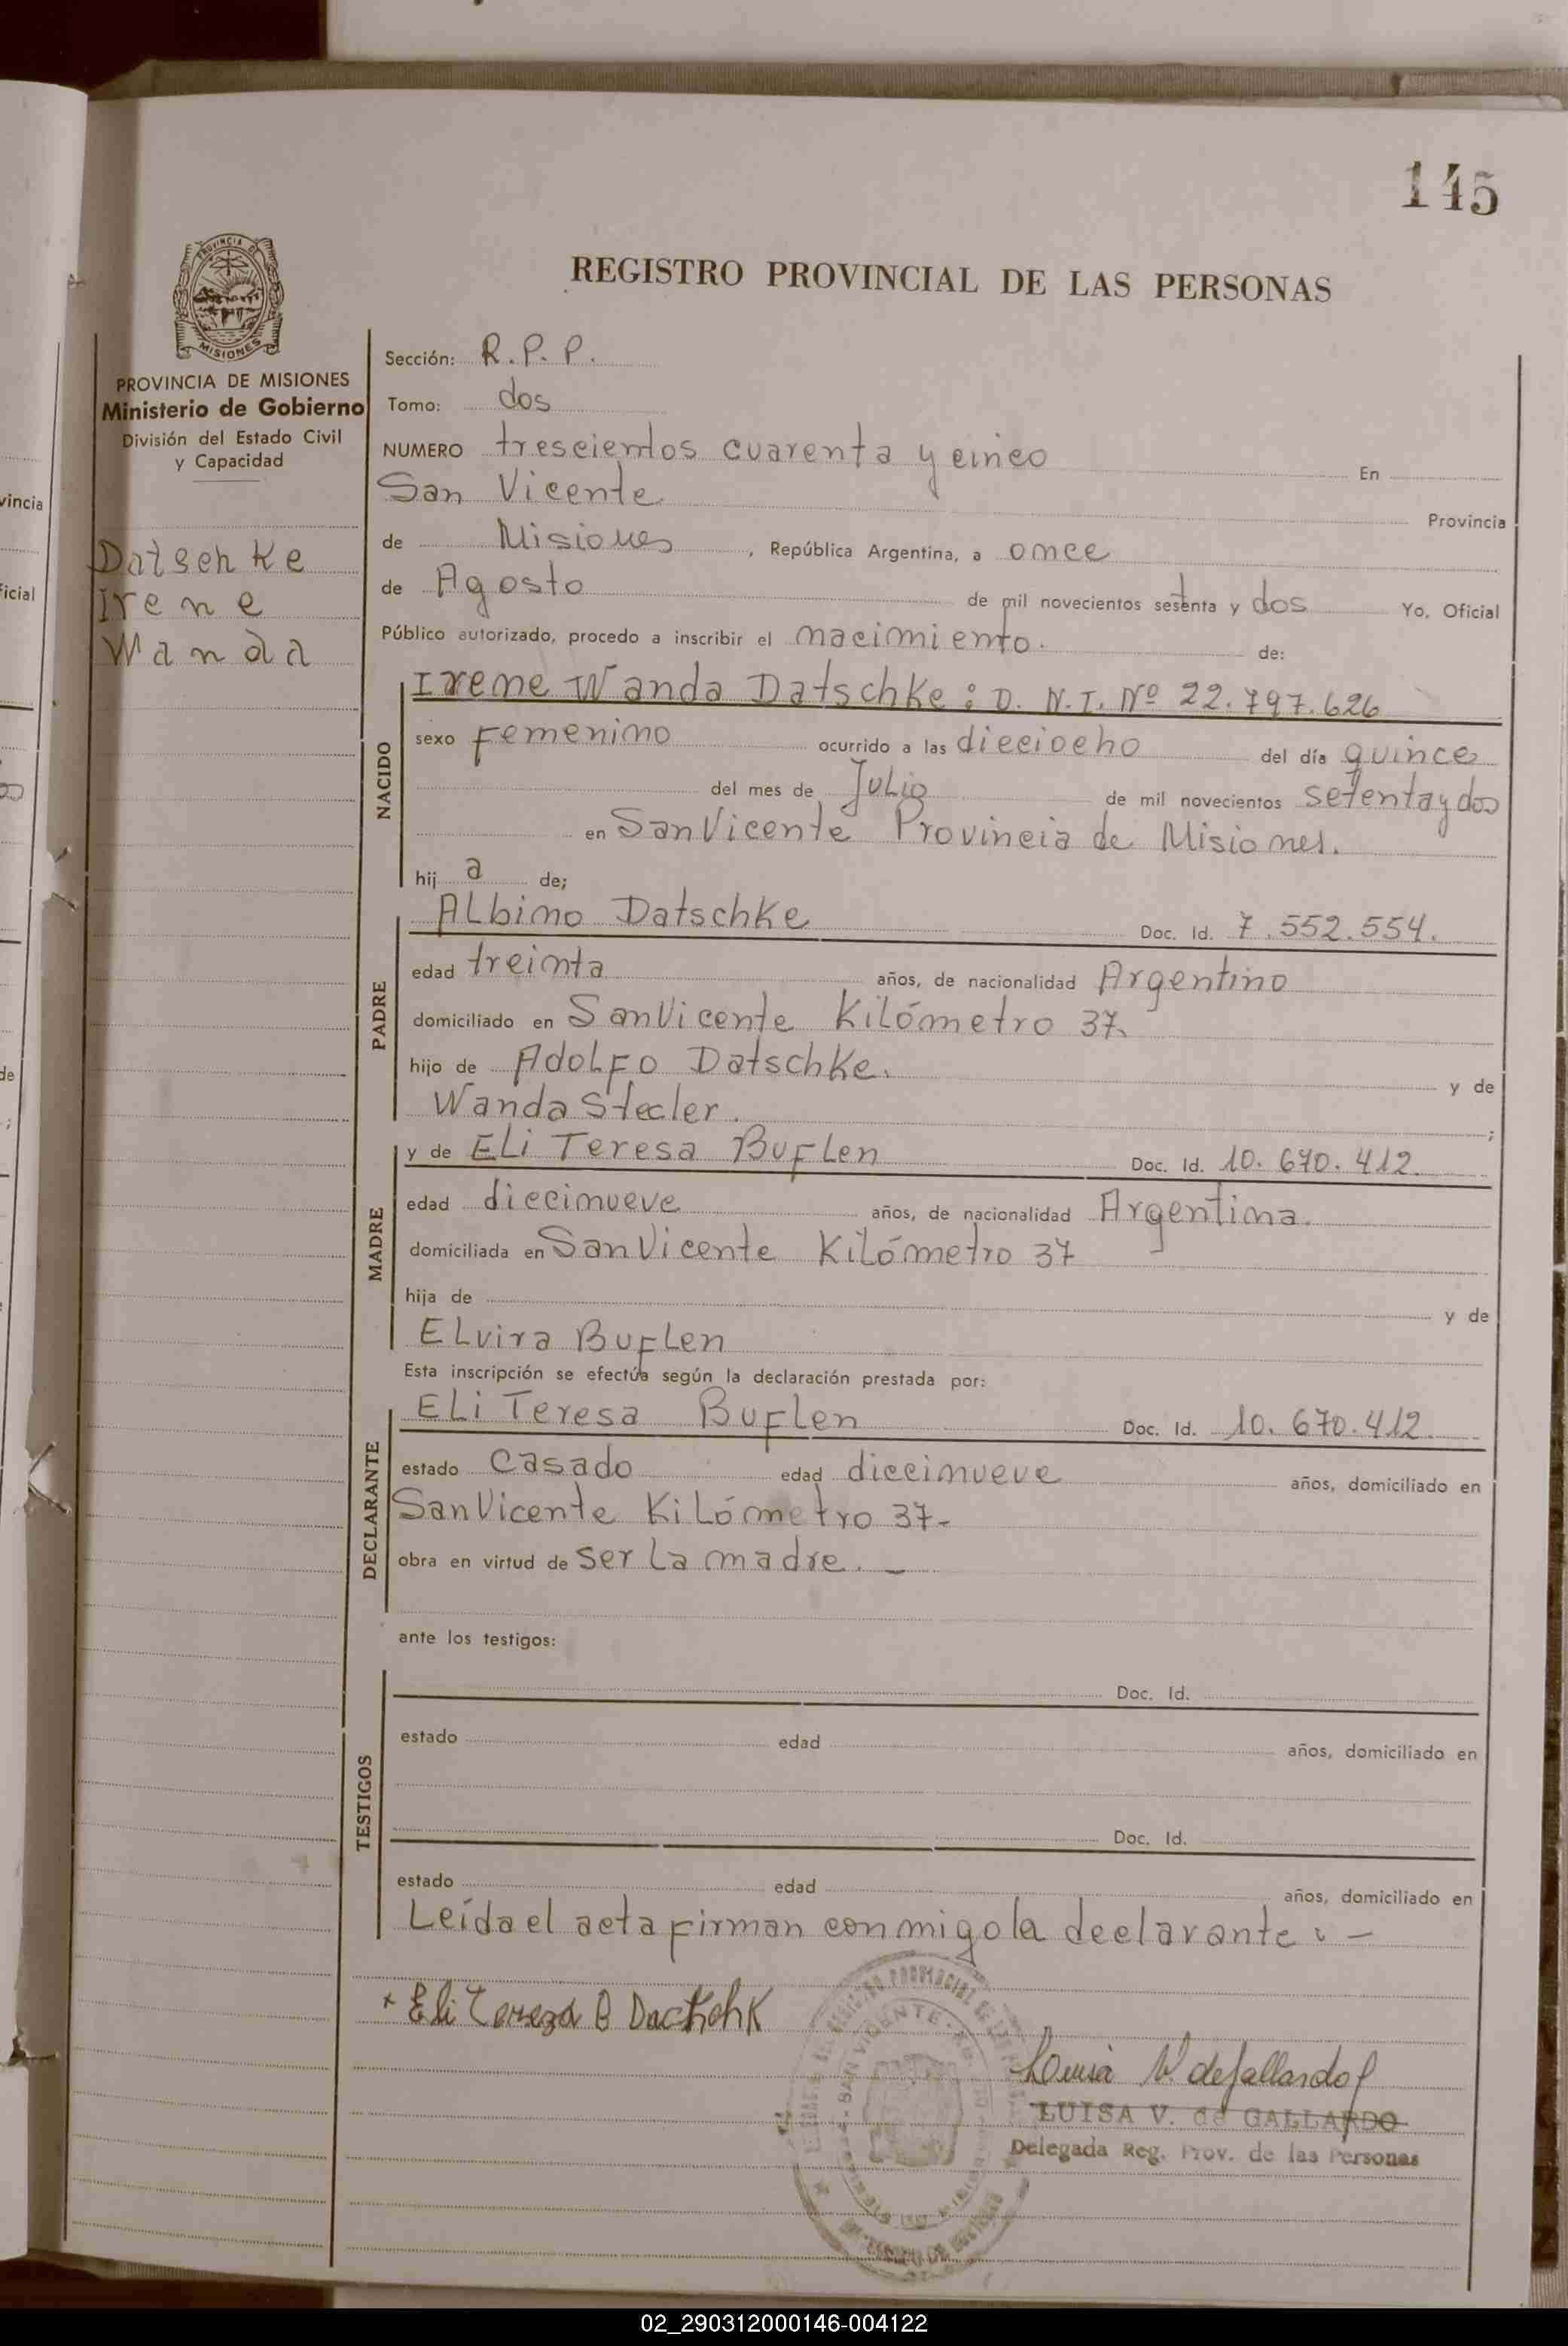 145
PROVINCIA DE
MISIONES
REGISTRO PROVINCIAL DE LAS PERSONAS
PROVINCIA DE MISIONES
Ministerio de Gobierno
División del Estado Civil
y Capacidad
Datschke
Irene
Wanda
Sección: R.P.P.
Tomo: dos
NUMERO trescientos cuarenta y cinco En
San Vicente Provincia
de Misiones, República Argentina, a once
de Agosto de mil novecientos setenta y dos Yo, Oficial
Público autorizado, procedo a inscribir el nacimiento. de:
NACIDO
Irene Wanda Datschke: D. N. I. Nº 22.797.626
sexo Femenino ocurrido a las dieciocho del día quince
del mes de Julio de mil novecientos setenta y dos
en San Vicente Provincia de Misiones.
hij a de;
PADRE
Albino Datschke Doc. Id. 7.552.554.
edad treinta años, de nacionalidad Argentino
domiciliado en San Vicente Kilómetro 37.
hijo de Adolfo Datschke. y de
Wanda Stecler. ;
MADRE
y de Eli Teresa Buflen Doc. Id. 10.670.412.
edad diecinueve años, de nacionalidad Argentina.
domiciliada en San Vicente Kilómetro 37
hija de y de
Elvira Buflen
Esta inscripción se efectúa según la declaración prestada por:
DECLARANTE
Eli Teresa Buflen Doc. Id. 10.670.412.
estado Casado edad diecinueve años, domiciliado en
San Vicente Kilómetro 37-
obra en virtud de ser la madre. -
ante los testigos:
TESTIGOS
Doc. Id.
estado edad años, domiciliado en
Doc. Id.
estado edad años, domiciliado en
Leída el acta firman conmigo la declarante: -
x Eli Tereza B Dactchk
Luisa V. de Gallardo
LUISA V. de GALLARDO
Delegada Reg. Prov. de las Personas
SAN VICENTE
vincia
ficial
de
02_290312000146-004122